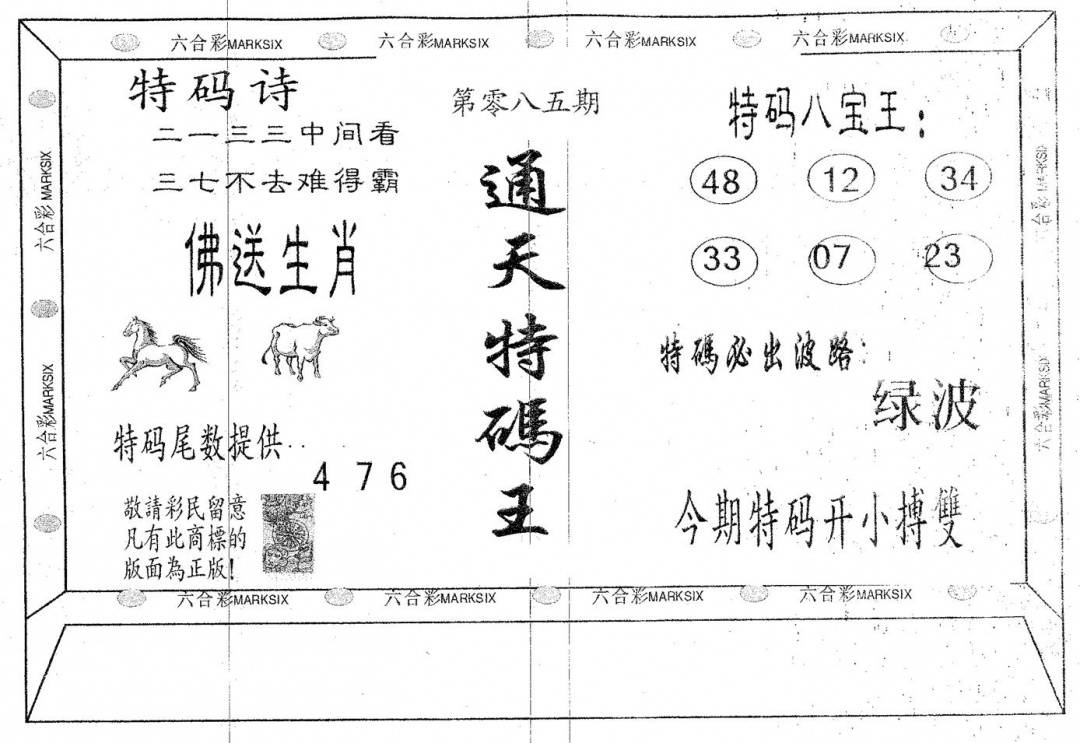 六合彩MARKSIX 六合彩MARKSIX 六合彩MARKSIX 六合彩MARKSIX
六合彩MARKSIX
六合彩MARKSIX
特码诗
二一三三中间看
三七不去难得霸
佛送生肖
特码尾数提供··
4 7 6
敬請彩民留意
凡有此商標的
版面為正版!
第零八五期
通天特碼王
特码八宝王:
48 12 34
33 07 23
特碼必出波路:
绿波
今期特码开小搏雙
六合彩MARKSIX
六合彩MARKSIX
六合彩MARKSIX 六合彩MARKSIX 六合彩MARKSIX 六合彩MARKSIX